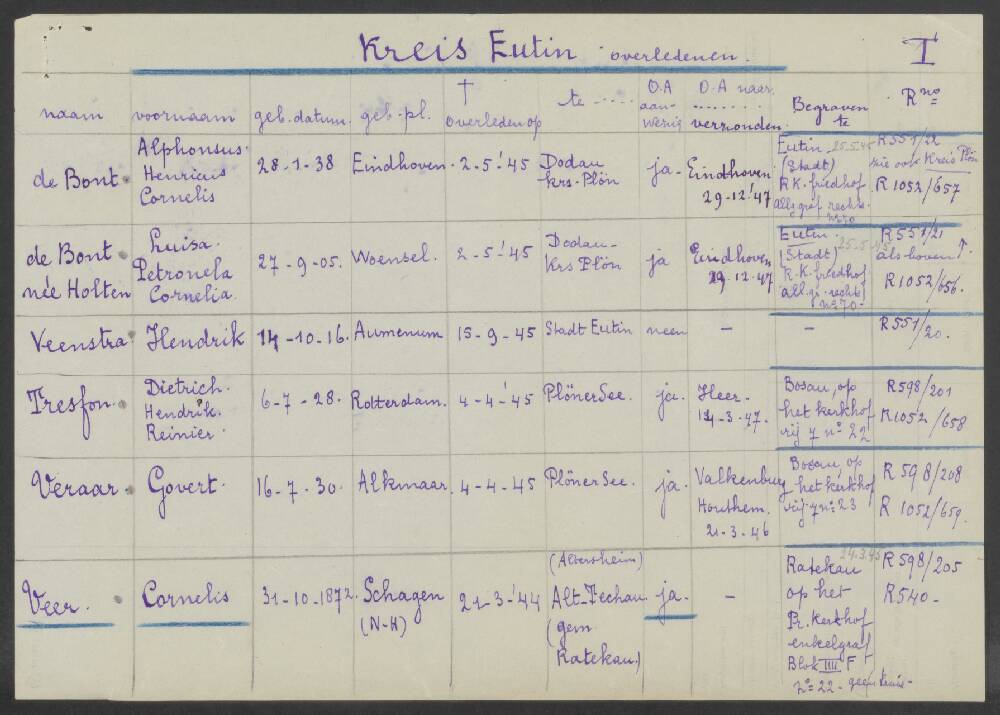 Kreis Eutin overledenen. I
naam voornaam geb. datum. geb. pl. † overleden op te ..... O.A aan-wezig O.A naar ........ verzonden Begraven te R no
de Bont. Alphonsus. Henricus Cornelis 28-1-38 Eindhoven. 2-5-'45 Dodau krs. Plön ja. Eindhoven 29-12-'47 Eutin 25.5.45 (Stadt) R.K. friedhof allg graf rechts. no 70 R 551/22 zie ook Kreis Plön R 1052/657
de Bont née Holten Luisa. Petronela Cornelia. 27-9-05. Woensel. 2-5-'45 Dodau- Krs Plön ja Eindhoven 29.12.47 Eutin. 25.5.45 (Stadt) R.K. friedhof all.gr. rechts no 70- R 551/21 als boven ↑. R 1052/656.
Veenstra Hendrik 14-10-16. Aumenum 15-9-45 Stadt Eutin neen - - R 551/20.
Tresfon. Dietrich. Hendrik. Reinier. 6-7-28. Rotterdam. 4-4-'45 Plöner See. ja. Heer- 14-3-47. Bosau, op het kerkhof rij 7 no 22 R 598/201 R 1052/658
Veraar. Govert. 16-7-30. Alkmaar. 4-4-45 Plöner See. ja. Valkenburg Houthem. 21-3-46 Bosau, op het kerkhof rij 7 no 23 R 598/208 R 1052/659.
Veer. Cornelis 31-10-1872. Schagen (N-H) 21-3-'44 (Alversheim) Alt-Techau (gem Ratekau.) ja. - Ratekau 24.3.45 op het Pr. kerkhof enkelgraf Blok IIII F no 22- geen kruis- R 598/205 R 540-